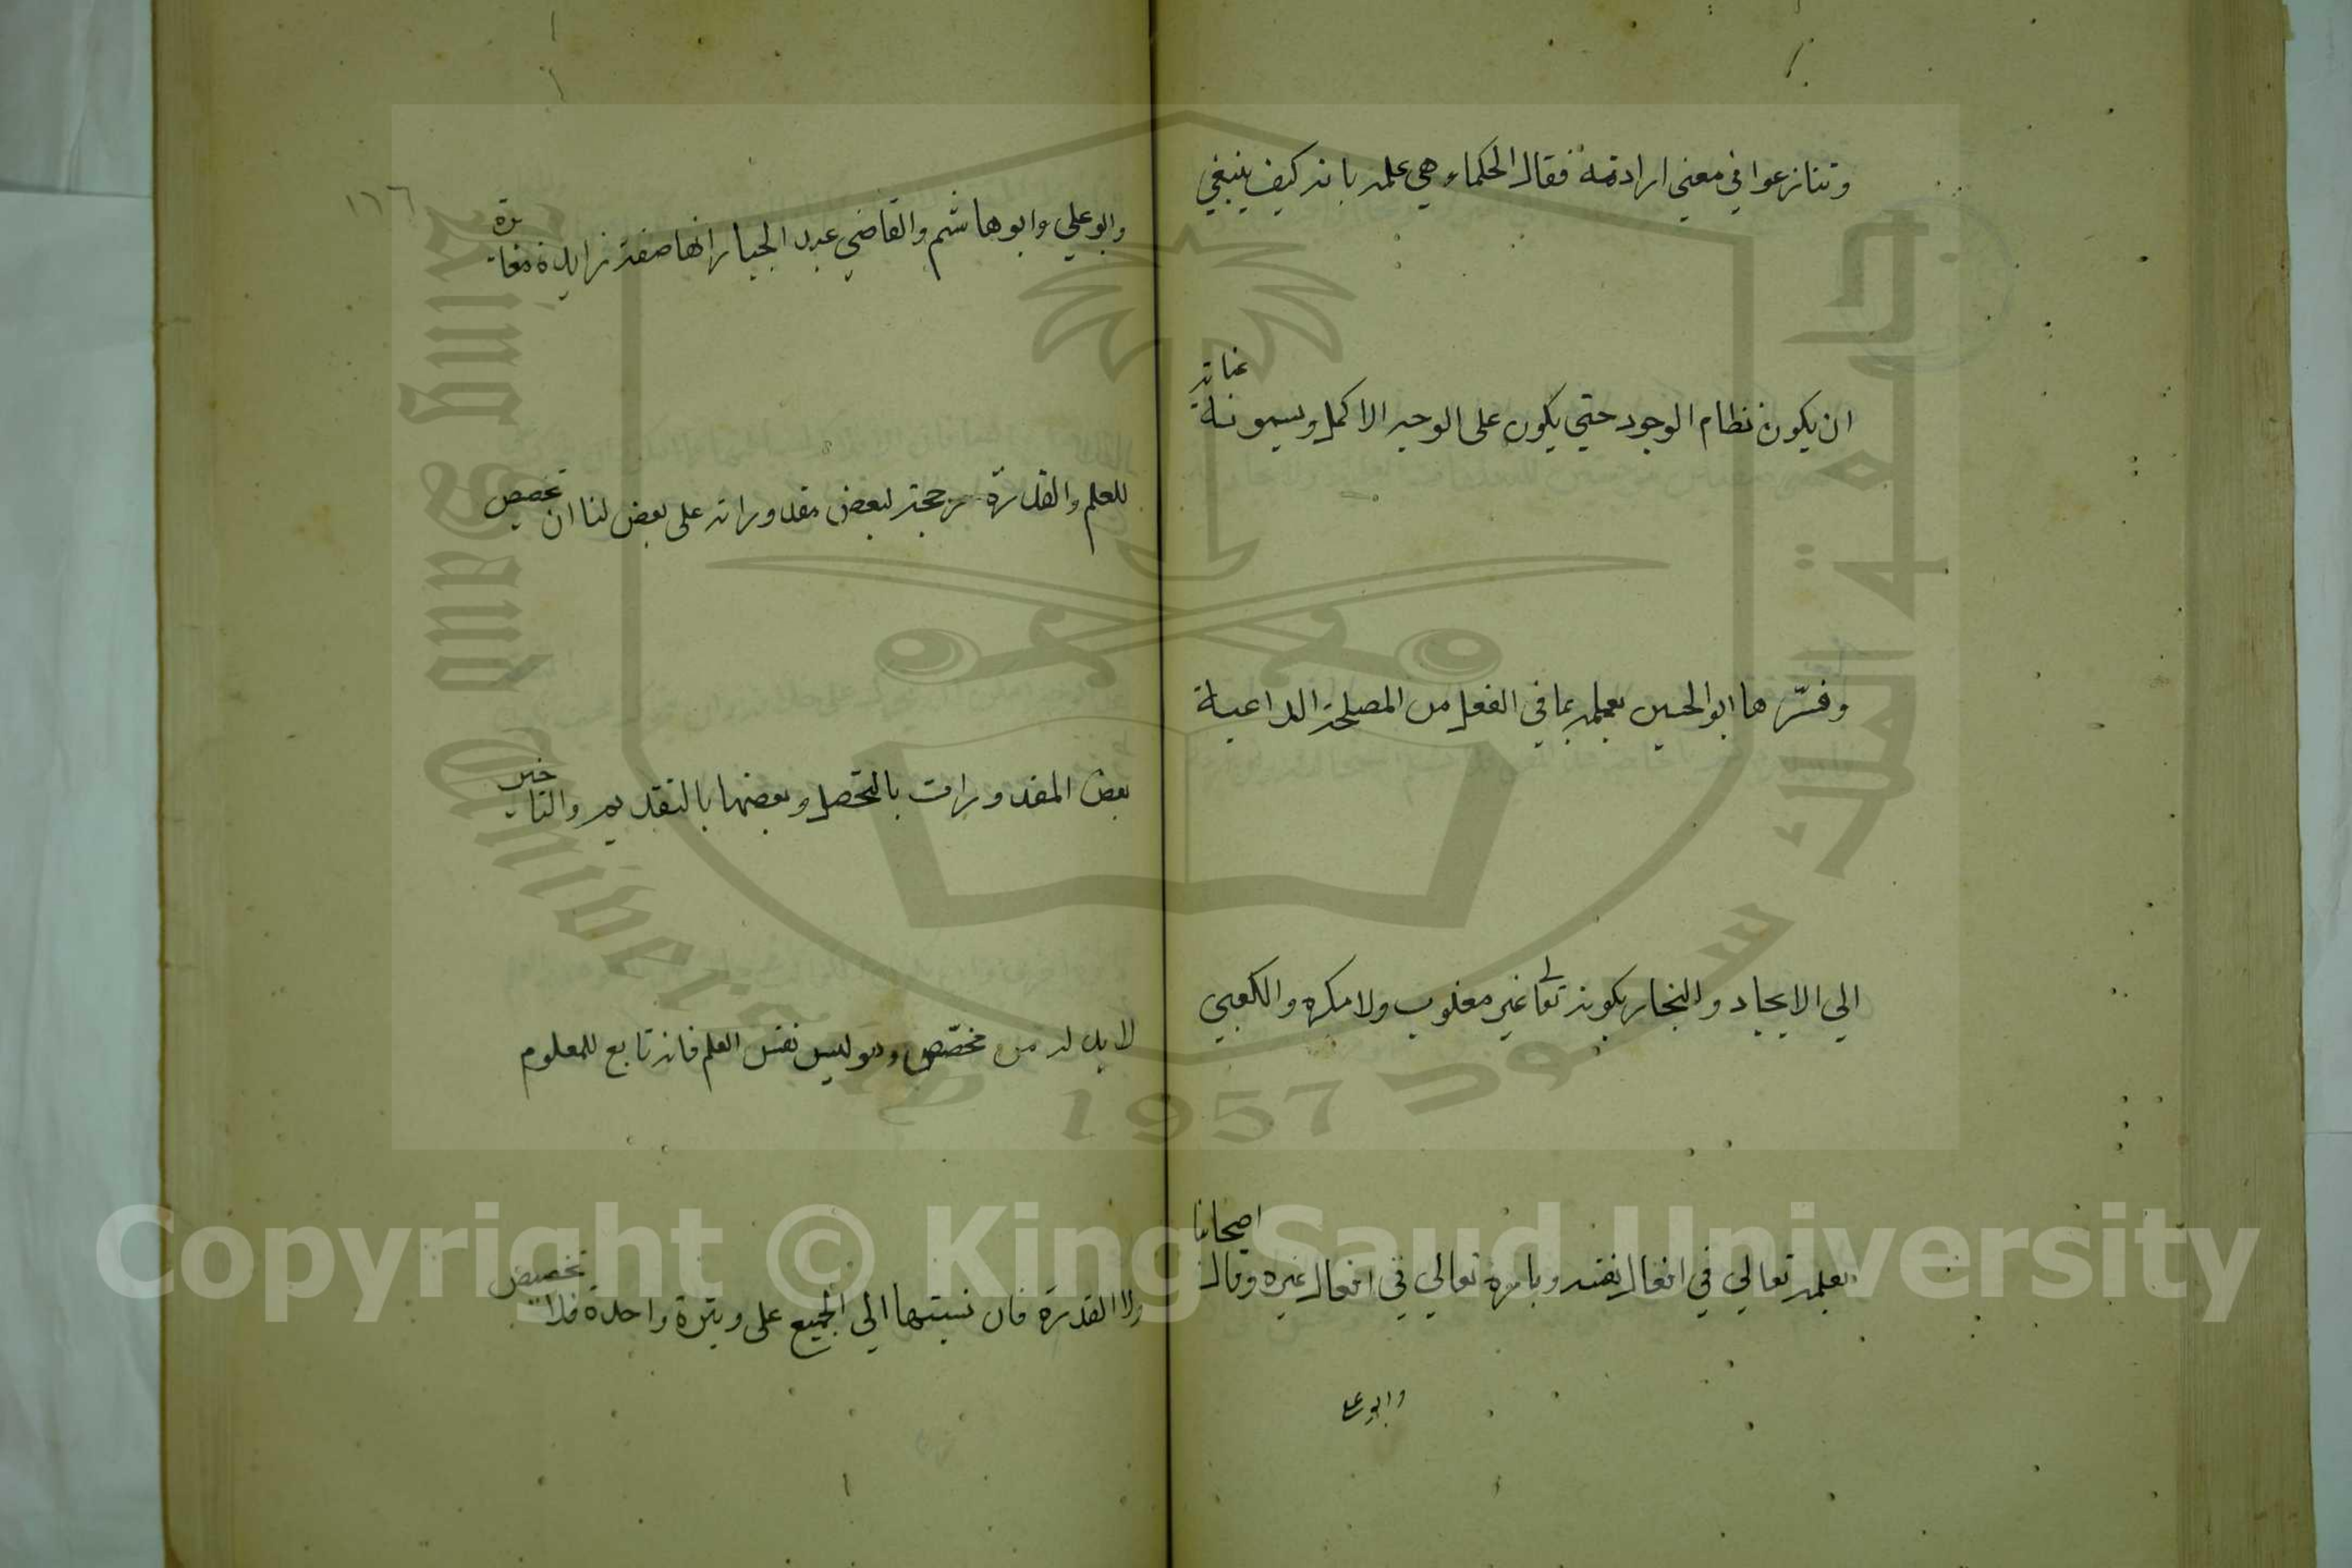 وتنازعوا في معني ارادته فقال الحكماء هي علمه بانه كيف ينبغي
ان يكون نظام الوجود حتي يكون على الوجه الاكمل ويسمونه عناية
وفسّرها ابو الحسين بعلمه بما في الفعل من المصلحة الداعية
الي الايجاد والنجار بكونه تعالى غير مغلوب ولا مكره والكعبي
بعلمه تعالي في افعال نفسه وبامره تعالي في افعال غيره وقال اصحابنا
وابو علي
١٦٦
وابو علي وابو هاشم والقاضي عبد الجبار انها صفة زايدة مغايرة
للعلم والقدرة مرجحة لبعض مقدوراته على بعض لنا ان تخصيص
بعض المقدورات بالتحصل وبعضها بالتقديم والتاخير
لا بد له من مخصّص وهو ليس نفس العلم فانه تابع للمعلوم
ولا القدرة فان نسبتها الي الجميع على وتيرة واحدة فلا تخصيص
Copyright © King Saud University
King Saud University
1957
جامعة الملك سعود